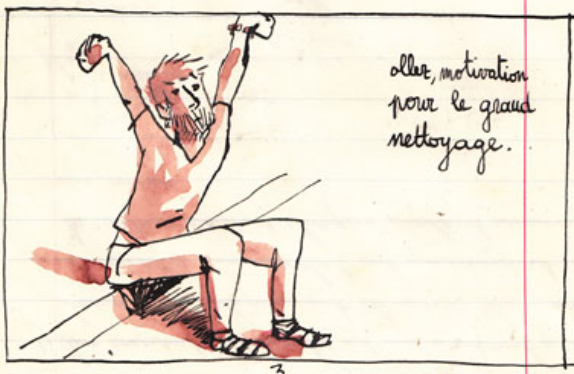 allez, motivation
pour le grand
nettoyage.
3